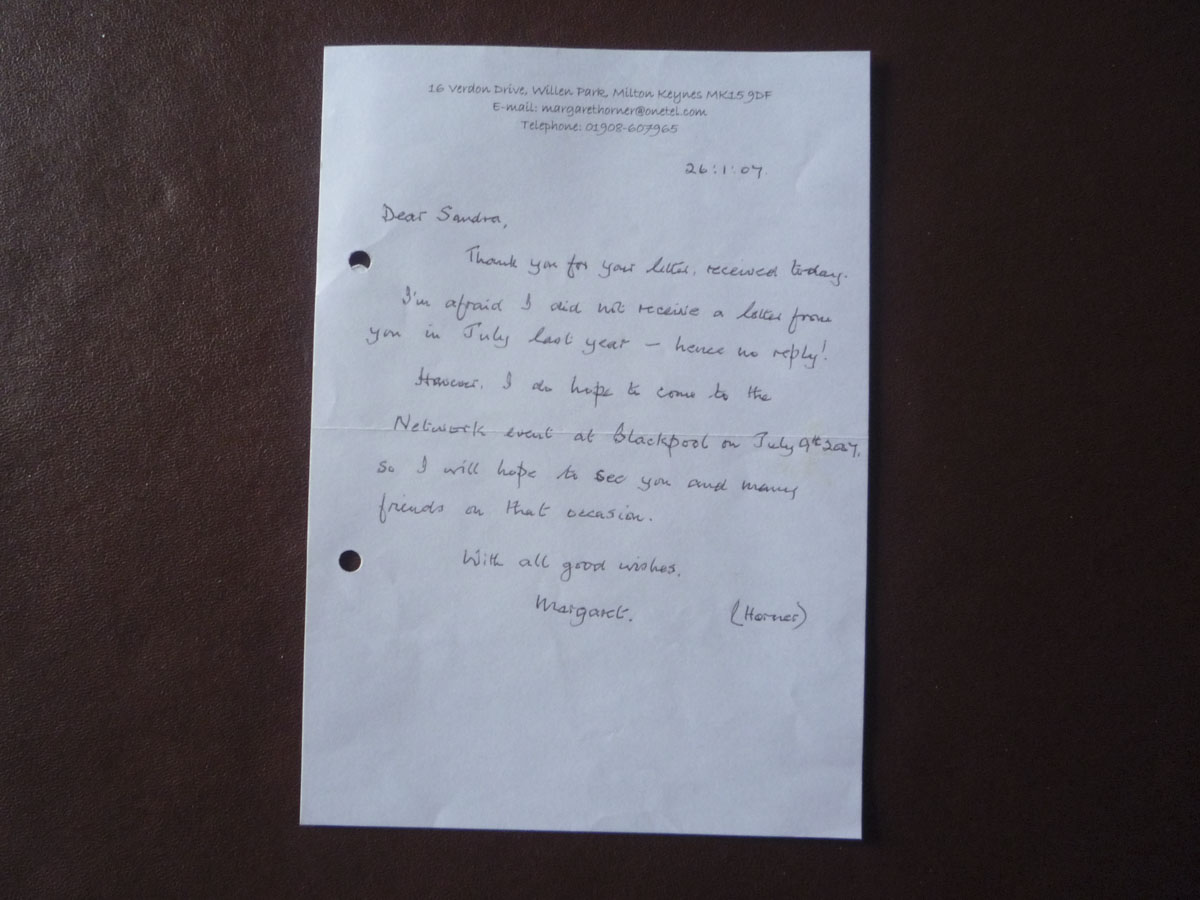 16 Verdon Drive, Willen Park, Milton Keynes MK15 9DF
E-mail: margarethorner@onetel.com
Telephone: 01908-607965
26:1:07.
Dear Sandra,
Thank you for your letter, received today.
I'm afraid I did not receive a letter from
you in July last year – hence no reply!
However, I do hope to come to the
Network event at Blackpool on July 9th 2007,
so I will hope to see you and many
friends on that occasion.
With all good wishes,
Margaret. (Horner)